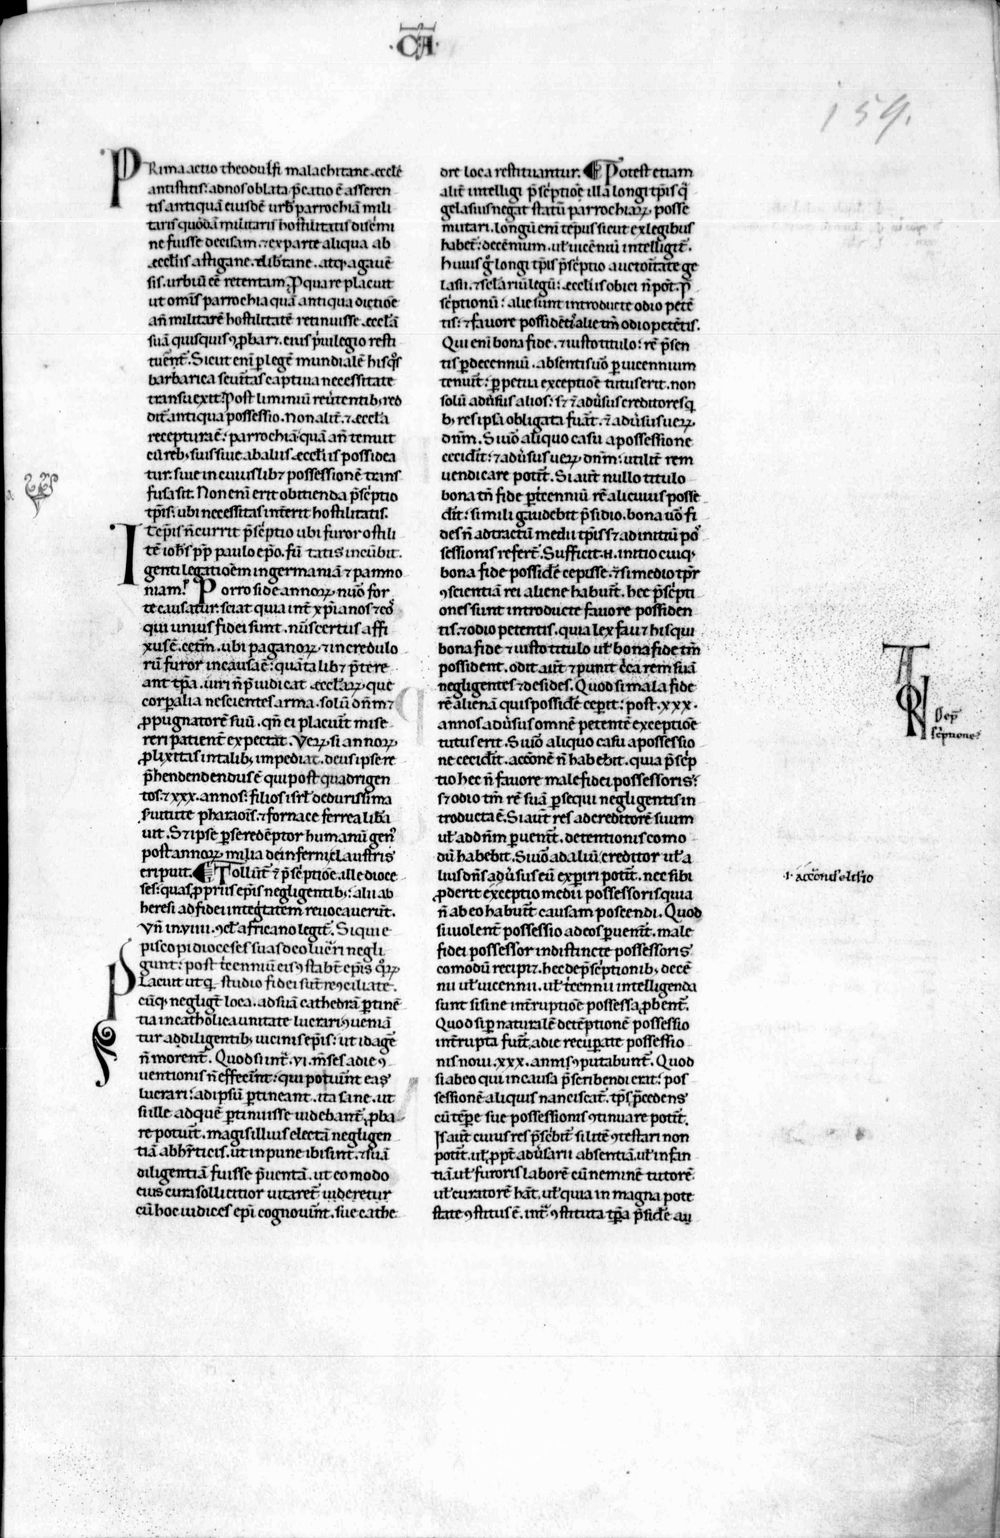 ·CA·
159.
PRima actio theodulfi malachitane ęcclę
antistitis: ad nos oblata p̃catio ē asseren
tis antiquā eiusdē urb̃ parrochiā mili
taris quōdā militaris hostilitatis disc̃mi
ne fuisse decisam. ⁊ ex parte aliqua ab
ęcclīs astigane. elib̃tane. atq; agauē
sis. urbiū eē retentam. ꝓ quare placuit
ut om̃is parrochia quā antiqua dictiōe
añ militarē hostilitatē retinuisse ęcclā
suā quisquis ꝯꝓbar&. eius p̃uilegio resti
tuent̃. Sicut eni ꝑ legē mundialē hisq̃s
barbarica seuit̃as captiua necessitate
transuexit. Post liminiū reũtentib; red
dit̃ antiqua possessio. Non alit̃ ⁊ ęccl̃a
receptura ē: parrochiā quā añ tenuit
cū reb; suis siue ab aliis ęcclīis possidea
tur. siue in cuiuslib& possessionē trans
fusa sit. Non eni erit obitienda p̃sc̃ptio
tp̃is: ubi necessitas int̃erit hostilitatis.
Itẽpis ñ currit p̃sc̃ptio ubi furor ostili
tē ioh̃s pp̃ paulo ep̃o. fũ tatis incũbit.
genti legatiōem in germaniā ⁊ panno
niam. Porro si de annoꝝ nũo for
te causatur. sciat quia int̃ xp̃ianos ⁊ eos
qui unius fidei sunt. nũs certus affi
xus ē. cet̃m. ubi paganoꝝ. ⁊ incredulo
rū furor in causa ē: quātalib& p̃tere
ant tp̃a. iuri ñ p̃iudicat ęcclaꝝ. que
corꝑalia nescientes arma. solū dñm ⁊
ꝓpugnatorē suū. qñ ei placuit̃ mise
reri patient̃ expectat. Veꝝ si annoꝝ
ꝓlixitas in talib; impediat. deus ipse re
p̃hendendus ē qui post quadrigen
tos. ⁊ xxx. annos: filios isrl̃ de durissima
ẽuitute pharaois. ⁊ fornace ferrea libā
uit. S; & ipse ꝑ se redẽptor humanū gen̄
post annoꝝ milia de inferni claustris
eripuit. Tollunt̃ ⁊ p̃sc̃ptiōe ille dioce
ses: quas ꝓpriis ep̃is negligentib;: alii ab
heresi ad fidei integ̃tatem reuocauerunt̃.
Vñ in viiii. ꝯcl̃ africano legit̃. Siqui e
piscopi dioceses suas deo luc̃ri negli
gunt: post tc̃enniū eis ꝯstabt̃ ep̃is q̃ꝝ
Placuit ut q̃ studio fidei sut̃ recōciliate.
cũq; negligt̃ loca. ad suā cathedrā ꝑtinē
tia in catholica unitate lucrari ꝯueniā
tur ad diligentib; uicinis ep̃is: ut id agē
ñ morent̃. Quod si int̃. vi. m̃ses a die ꝯ
uentionis ñ effecint̃: qui potuint̃ eas
lucrari: ad ip̃sū ꝑtineant. ita sane. ut
si ille ad quē ꝑtinuisse uidebant̃. ꝓba
re potuit. magis illius electā negligen
tiā ab hr̃eticis. ut inpune ibi sint. ⁊ suā
diligentiā fuisse p̃uentā. ut eo modo
eius cura sollicitior uitaret̃ uideretur
cū hoc iudices ep̃i cognouint̃. sue cathe
dre loca restituantur. Potest etiam
alit̃ intelligi p̃sc̃ptioē illā longi tp̃is q̃
gelasius negat statū parrochiaꝝ. posse
mutari. longū eni tẽpus sicut ex legibus
habet̃: decēnium. ul̃ uicēniū intelligit̃.
Huius g̃ longi tp̃is p̃sc̃ptio auctorit̃ate ge
lasii. ⁊ sc̃lariū legū: ęcclīis obici ñ pōt. p̃
sc̃ptionū: alie sunt introducte odio petē
tis: ⁊ fauore possidētis. alie tm̃ odio petētis.
Qui eni bona fide. ⁊ iusto titulo: rē p̃sen
tis ꝑ decenniū. absentis ũo ꝑ uicennium
tenuit̃: ꝑpetua exceptiōe tutus erit. non
solū adũsus alios: s; & adũsus creditores q̃
b; res ipsa obligata fuat̃. ⁊ adũsus ueꝝ.
dnm̃. Si ũo aliquo casu a possessione
ceciderit: & adũsus ueꝝ. dnm̃: utilit̃ rem
uendicare potit̃. Si aut̃ nullo titulo
bona tm̃ fide ꝑ tc̃enniū rē alicuius posse
dit̃: simili gaudebit p̃sidio. bona ũo fi
des ñ ad tractū medii tp̃is s; ad initiū pos
sessionis refert̃. Sufficit. n. initio cuiq;
bona fide possidē cepisse. & si medio tpr̃
ꝯscientiā rei aliene habuit̃. hec p̃sc̃pti
ones sunt introducte fauore possiden
tis. ⁊ odio petentis. quia lex fau& his qui
bona fide ⁊ iusto titulo ul̃ bona fide tm̃
possident. odit aut̃ ⁊ punit c̃ca rem suā
negligentes ⁊ desides. Quod si mala fide
rē alienā quis possidē cepit: post .xxx.
annos adũsus omnē petentē exceptiōe
tutus erit. Si ũo aliquo casu a possessio
ne ceciderit. acc̃onē ñ habebit. quia p̃sc̃p
tio hec ñ fauore male fidei possessoris:
s; odio tm̃ rē suā ꝑsequi negligentis in
troducta ē. Si aut̃ res ad creditorē suum
ul̃ ad dnm̃ ꝑuenit̃. detentionis como
dū habebit. Si ũo ad aliū creditor ul̃ a
lius dñs adũsus eū experiri potit̃. nec sibi
ꝓderit exceptio medii possessoris quia
ñ ab eo habuit̃ causam poscendi. Quod
si uiolent̃ possessio ad eos ꝑuenit̃. male
fidei possessor indistincte possessoris
comodū recipi&. hec de p̃sc̃ptionib; decē
nii ul̃ uicennii. ul̃ tc̃ennii intelligenda
sunt si sine int̃ruptiōe possessa ꝓbent̃.
Quod si ꝑ naturalē detẽptionē possessio
int̃rupta fuit̃. a die recuꝑate possessio
nis noui .xxx. annis ꝯputabunt̃. Quod
si ab eo qui in causa p̃scribendi erit: pos
sessionē aliquis nanciscat̃. tp̃s p̃cedens
cū tẽpe sue possessionis ꝯtinuare potit̃.
Is aut̃ cuius res p̃sc̃bit̃ si lite ꝯtestari non
potit̃. ul̃ ꝓpt̃ adũsarii absentiā. ul̃ infan
tiā. ul̃ furoris laborē cū neminē tutorē
ul̃ curatorē hāt. ul̃ quia in magna pote
state ꝯstitus ē. int̃ ꝯstituta tp̃a p̃sidē au
Dep̃
sc̃ptione
.i. acc̃onis elisio